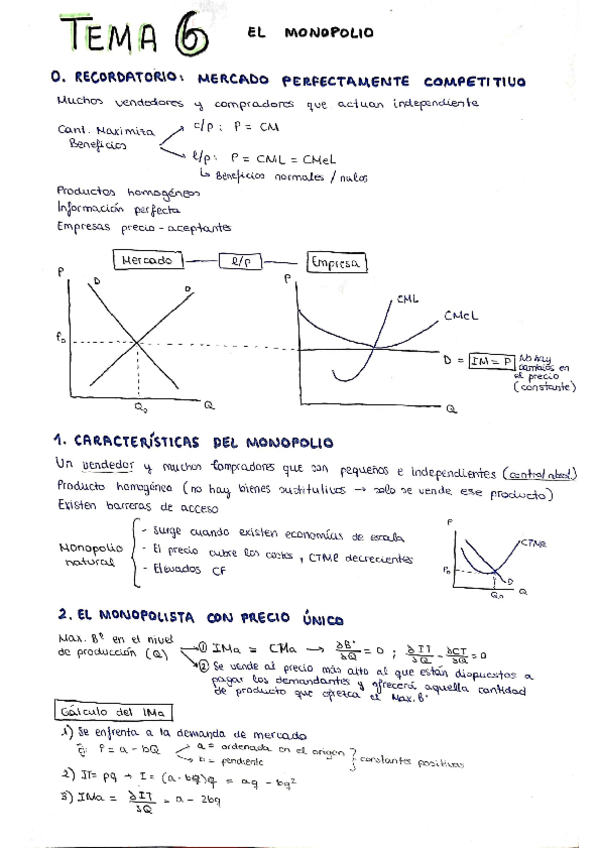 TEMA 6 EL MONOPOLIO
0. RECORDATORIO: MERCADO PERFECTAMENTE COMPETITIVO
Muchos vendedores y compradores que actuan independiente
Cant. Maximiza Beneficios
c/p: P = CM
l/p: P = CML = CMeL
↳ Beneficios normales / nulos
Productos homogéneos
Información perfecta
Empresas precio-aceptantes
Mercado l/p Empresa
P
D
O
P₀
Q₀
Q
P
CML
CMeL
D = IM = P
No hay cambios en el precio (constante)
Q
1. CARACTERÍSTICAS DEL MONOPOLIO
Un vendedor y muchos compradores que son pequeños e independientes (control absol.)
Producto homogéneo (no hay bienes sustitutivos → solo se vende ese producto)
Existen barreras de acceso
Monopolio natural
- Surge cuando existen economías de escala
- El precio cubre los costes, CTMe decrecientes
- Elevados CF
P
CTMe
P₀
D
Q₀
Q
2. EL MONOPOLISTA CON PRECIO ÚNICO
Max. Bº en el nivel de producción (Q)
① IMa = CMa → ∂Bº/∂Q = 0 ; ∂IT/∂Q - ∂CT/∂Q = 0
② Se vende al precio más alto al que están dispuestos a
pagar los demandantes y ofrecerá aquella cantidad
de producto que ofrezca el Max. Bº
Cálculo del IMa
1) Se enfrenta a la demanda de mercado
Ej: P = a - bQ
a = ordenada en el origen
b = pendiente
constantes positivas
2) IT = pq → I = (a - bq)q = aq - bq²
3) IMa = ∂IT/∂Q = a - 2bq